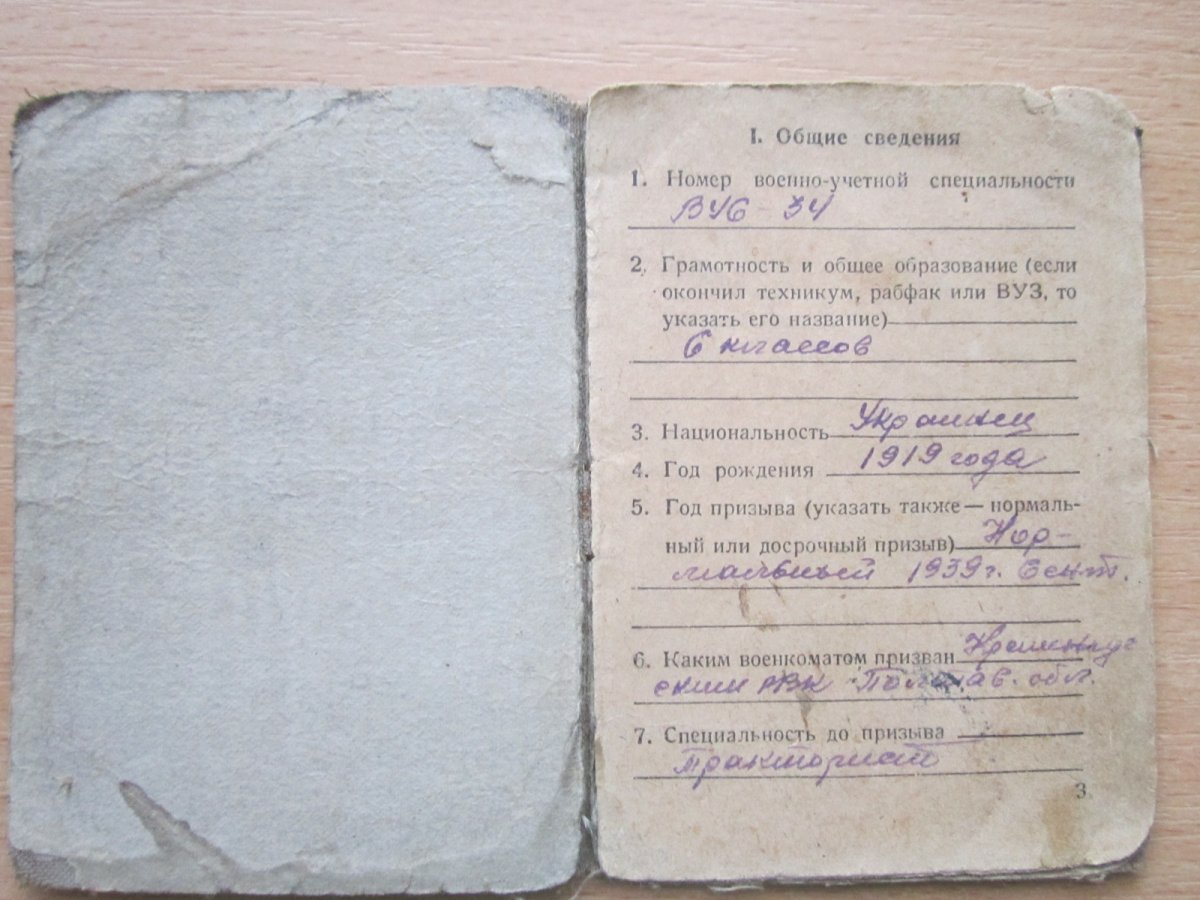 I. Общие сведения
1. Номер военно-учетной специальности
ВУС - 34
2. Грамотность и общее образование (если
окончил техникум, рабфак или ВУЗ, то
указать его название)
6 классов
3. Национальность Украинец
4. Год рождения 1919 года
5. Год призыва (указать также — нормаль-
ный или досрочный призыв) Нор-
мальный 1939 г. Сент.
6. Каким военкоматом призван
ским РВК Полтав. обл.
7. Специальность до призыва
Тракторист
3